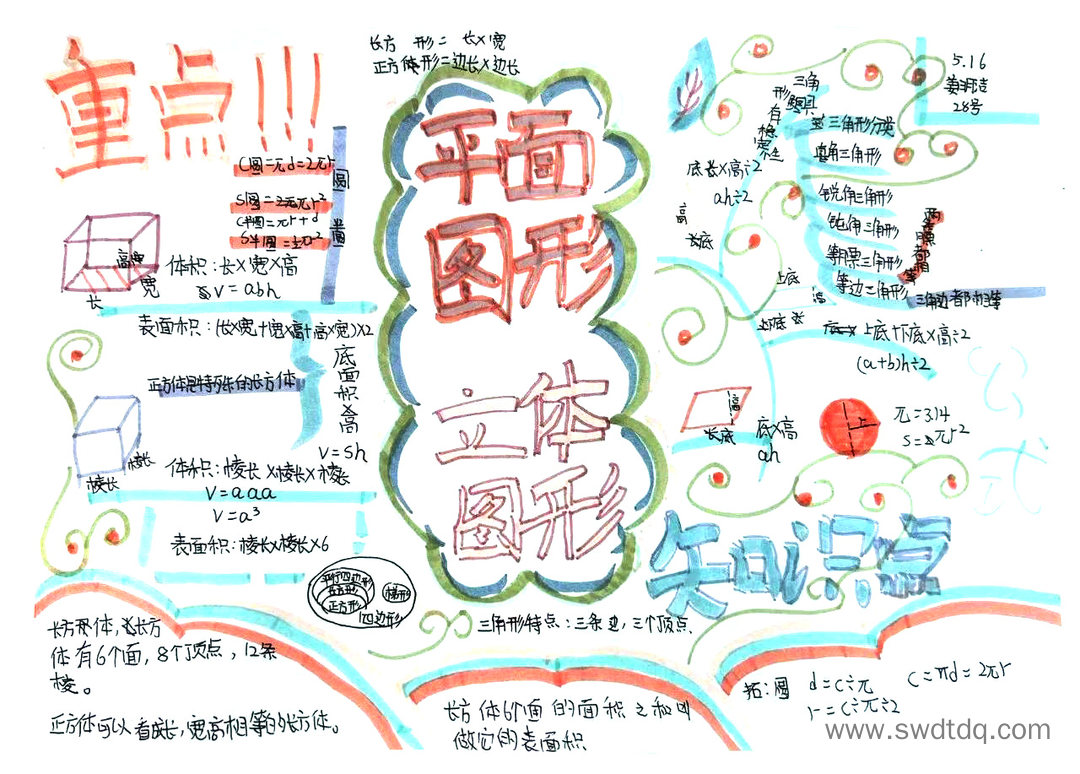 重点!!!
长方 形= 长×宽
正方体形=边长×边长
平面
图形
立体
图形
C圆=πd=2πr
圆
C半圆=πr+d
半圆
高
宽
长
体积:长×宽×高
V=abh
表面积:(长×宽+宽×高+高×宽)×2
正方体是特殊的长方体
底面积×高
V=sh
棱长
棱长
体积:棱长×棱长×棱长
V=aaa
V=a³
表面积:棱长×棱长×6
平行四边形
长方形
正方形
梯形
四边形
5.16
28号
三角
形
有稳定性
三角形分类
直角三角形
锐角三角形
钝角三角形
等腰三角形
等边三角形
两条腰都相等
三角边都相等
底长×高÷2
ah÷2
高
长底
上底
上底+下底×高÷2
(a+b)h÷2
高
长底
底×高
ah
r
π=3.14
S=πr²
公式
知识点
三角形特点:三条边,三个顶点
长方
体有6个面,8个顶点,12条
棱。
正方体可以看成长,宽高相等的长方体。
长方体6个面的面积之和叫
做它的表面积
拓:圆
d=C÷π
r=C÷π÷2
C=πd=2πr
www.swdtdq.com